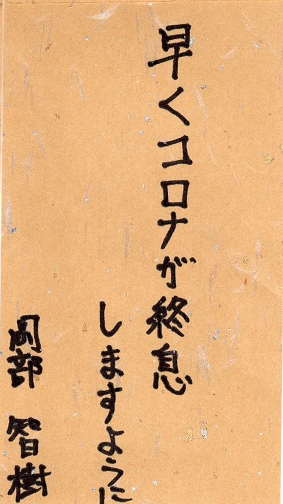 早くコロナが終息
しますように
岡部 智樹